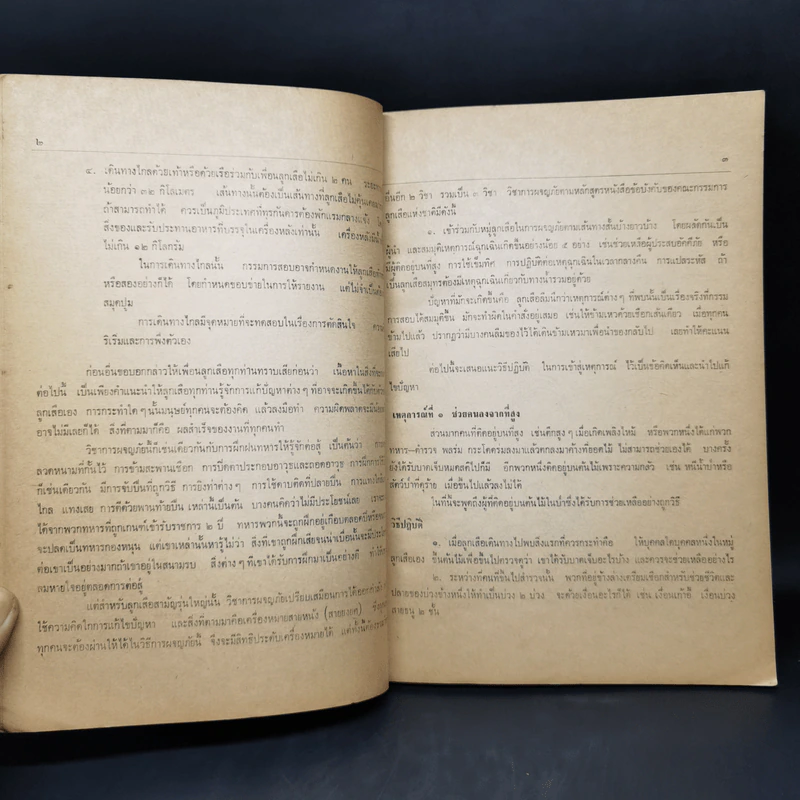 ๒
๔. เดินทางไกลด้วยเท้าหรือด้วยเรือร่วมกับเพื่อนลูกเสือไม่เกิน ๒ คน
น้อยกว่า ๓๒ กิโลเมตร เส้นทางนั้นต้องเป็นเส้นทางที่ลูกเสือไม่คุ้นเคย
ถ้าสามารถทำได้ ควรเป็นภูมิประเทศที่ทุรกันดารต้องพักแรมกลางแจ้ง
สิ่งของและรับประทานอาหารที่บรรจุในเครื่องหลังเท่านั้น เครื่องหลังมี
ไม่เกิน ๑๒ กิโลกรัม
ในการเดินทางไกลนั้น กรรมการสอบอาจกำหนดงานให้ลูกเสือ
หรือสองอย่างก็ได้ โดยกำหนดขอบข่ายในการให้รายงาน แต่ไม่จำเป็น
สมุดปูม
การเดินทางไกลมีจุดหมายที่จะทดสอบในเรื่องการตัดสินใจ ความ
ริเริ่มและการพึ่งตัวเอง
ก่อนอื่นขอบอกกล่าวให้เพื่อนลูกเสือทุกท่านทราบเสียก่อนว่า เนื้อหาในสิ่งที่
ต่อไปนี้ เป็นเพียงคำแนะนำให้ลูกเสือทุกท่านรู้จักการแก้ปัญหาต่างๆ ที่อาจจะเกิดขึ้นได้กับตัว
ลูกเสือเอง การกระทำใดๆ นั้นมนุษย์ทุกคนจะต้องคิด แล้วลงมือทำ ความผิดพลาดจะมีน้อย
อาจไม่มีเลยก็ได้ สิ่งที่ตามมาก็คือ ผลสำเร็จของงานที่ทุกคนทำ
วิชาการผจญภัยนี้ก็เช่นเดียวกันกับการฝึกฝนทหารให้รู้จักต่อสู้ เป็นต้นว่า การ
ลวดหนามที่กั้นไว้ การข้ามสะพานเชือก การปิดตาประกอบอาวุธและถอดอาวุธ การฝึกการใช้
ก็เช่นเดียวกัน มีการจับปืนที่ถูกวิธี การยิงท่าต่างๆ การใช้ดาบติดที่ปลายปืน การแทงใน
ไกล แทงเสย การตีด้วยพานท้ายปืน เหล่านี้เป็นต้น บางคนคิดว่าไม่มีประโยชน์เลย
ได้จากพวกทหารที่ถูกเกณฑ์เข้ารับราชการ ๒ ปี ทหารพวกนี้จะถูกฝึกอยู่เกือบตลอดปี
จะปลดเป็นทหารกองหนุน แต่เขาเหล่านั้นหารู้ไม่ว่า สิ่งที่เขาถูกฝึกเสียจนน่าเบื่อนั้นจะมี
ต่อเขาเป็นอย่างมากถ้าเขาอยู่ในสนามรบ สิ่งต่างๆ ที่เขาได้รับการฝึกมาเป็นอย่างดี ทำให้
ลมหายใจอยู่ตลอดการต่อสู้
แต่สำหรับลูกเสือสามัญรุ่นใหญ่นั้น วิชาการผจญภัยเปรียบเสมือนการได้ออก
ใช้ความคิดในการแก้ไขปัญหา และสิ่งที่ตามมาคือเครื่องหมายสายหนัง (สายยงยศ) ซึ่ง
ทุกคนจะต้องผ่านให้ได้ในวิธีการผจญภัยนี้ จึงจะมีสิทธิประดับเครื่องหมายได้ แต่ทั้งนี้ต้อง
๓
อื่นอีก ๒ วิชา รวมเป็น ๓ วิชา วิชาการผจญภัยตามหลักสูตรหนังสือข้อบังคับของคณะกรรมการ
ลูกเสือแห่งชาติมีดังนี้
๑. เข้าร่วมกับหมู่ลูกเสือในการผจญภัยตามเส้นทางสั้นบ้างยาวบ้าง โดยผลัดกันเป็น
ผู้นำ และสมมุติเหตุการณ์ฉุกเฉินเกิดขึ้นอย่างน้อย ๕ อย่าง เช่นช่วยเหลือผู้ประสบอัคคีภัย หรือ
มีผู้ติดอยู่บนที่สูง การใช้เข็มทิศ การปฏิบัติต่อเหตุฉุกเฉินในเวลากลางคืน การแปลรหัส ถ้า
เป็นลูกเสือสมุทรต้องมีเหตุฉุกเฉินเกี่ยวกับทางน้ำรวมอยู่ด้วย
ปัญหาที่มักจะเกิดขึ้นคือ ลูกเสือลืมนึกว่าเหตุการณ์ต่างๆ ที่พบนั้นเป็นเรื่องจริงที่กรรม
การสอบได้สมมุติขึ้น มักจะทำผิดในคำสั่งอยู่เสมอ เช่นให้ข้ามเหวด้วยเชือกเส้นเดียว เมื่อทุกคน
ข้ามไปแล้ว ปรากฏว่ามีบางคนลืมของไว้ได้เดินข้ามเหวมาเพื่อนำของกลับไป เลยทำให้คะแนน
เสียไป
ต่อไปนี้จะเสนอแนะวิธีปฏิบัติ ในการเข้าสู่เหตุการณ์ ไว้เป็นข้อคิดเห็นและนำไปแก้
ไขปัญหา
เหตุการณ์ที่ ๑ ช่วยคนลงจากที่สูง
ส่วนมากคนที่ติดอยู่บนที่สูง เช่นตึกสูงๆ เมื่อเกิดเพลิงไหม้ หรือพวกหนึ่งได้แก่พวก
ทหาร–ตำรวจ พลร่ม กระโดดร่มลงมาแล้วตกลงมาค้างที่ยอดไม้ ไม่สามารถช่วยตัวเองได้ บางครั้ง
ยังได้รับบาดเจ็บหมดสติไปก็มี อีกพวกหนึ่งคือติดอยู่บนต้นไม้เพราะความกลัว เช่น หนีน้ำป่าหรือ
สัตว์ป่าที่ดุร้าย เมื่อขึ้นไปแล้วลงไม่ได้
ในที่นี้จะพูดถึงผู้ที่ติดอยู่บนต้นไม้ในป่าซึ่งได้รับการช่วยเหลืออย่างถูกวิธี
วิธีปฏิบัติ
๑. เมื่อลูกเสือเดินทางไปพบสิ่งแรกที่ควรกระทำคือ ให้บุคคลใดบุคคลหนึ่งในหมู่
ลูกเสือเอง ขึ้นต้นไม้เพื่อขึ้นไปตรวจดูว่า เขาได้รับบาดเจ็บอะไรบ้าง และควรจะช่วยเหลืออย่างไร
๒. ระหว่างที่คนที่ขึ้นไปสำรวจนั้น พวกที่อยู่ข้างล่างเตรียมเชือกสำหรับช่วยชีวิตและ
ปลายของบ่วงข้างหนึ่งให้ทำเป็นบ่วง ๒ บ่วง จะด้วยเงื่อนอะไรก็ได้ เช่น เงื่อนเก้าอี้ เงื่อนบ่วง
สายธนู ๒ ชั้น